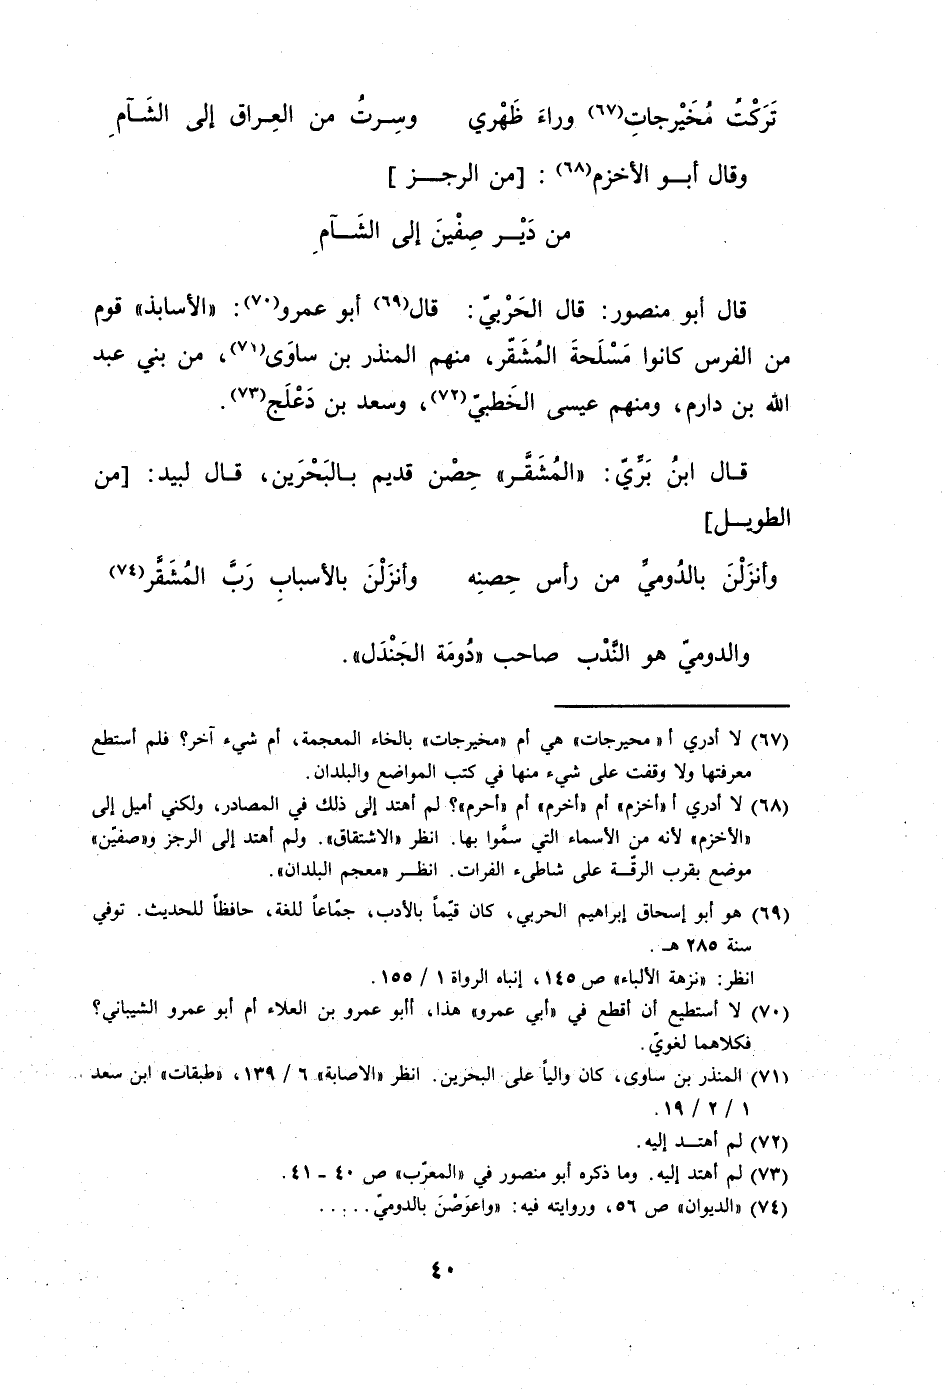 تَرَكْتُ مُخَيْرجاتِ(٦٧) وراءَ ظَهْري وسِرتُ من العِراق إلى الشَآمِ
وقال أبو الأخزم(٦٨) : [من الرجز ]
من دَيْر صِفْينَ إلى الشَآمِ
قال أبو منصور: قال الحَرْبيّ: قال(٦٩) أبو عمرو(٧٠): «الأسابذ» قوم
من الفرس كانوا مَسْلَحةَ المُشَقّر، منهم المنذر بن ساوَى(٧١)، من بني عبد
الله بن دارم، ومنهم عيسى الخَطبيّ(٧٢)، وسعد بن دَعْلَج(٧٣).
قال ابنُ بَرِّيّ: «المُشَقَّر» حِصْن قديم بالبَحْرَين، قال لبيد: [من
الطويل]
وأنزَلْنَ بالدُوميِّ من رأس حِصنِه وأنزَلْنَ بالأسبابِ رَبَّ المُشَقَّر(٧٤)
والدوميّ هو النَّدْب صاحب «دُومَة الجَنْدَل».
(٦٧) لا أدري أ « محيرجات» هي أم «مخيرجات» بالخاء المعجمة، أم شيء آخر؟ فلم أستطع
معرفتها ولا وقفت على شيء منها في كتب المواضع والبلدان.
(٦٨) لا أدري أ «أخزم» أم «أخرم» أم «أحرم»؟ لم أهتد إلى ذلك في المصادر، ولكني أميل إلى
«الأخزم» لأنه من الأسماء التي سمَّوا بها. انظر «الاشتقاق». ولم أهتد إلى الرجز و«صفيّن»
موضع بقرب الرقّة على شاطىء الفرات. انظر «معجم البلدان».
(٦٩) هو أبو إسحاق إبراهيم الحربي، كان قيّماً بالأدب، جمّاعاً للغة، حافظاً للحديث. توفي
سنة ٢٨٥ هـ .
انظر: «نزهة الألباء» ص ١٤٥، إنباه الرواة ١ / ١٥٥.
(٧٠) لا أستطيع أن أقطع في «أبي عمرو» هذا، أأبو عمرو بن العلاء أم أبو عمرو الشيباني؟
فكلاهما لغويّ.
(٧١) المنذر بن ساوى، كان والياً على البحرين. انظر «الاصابة» ٦ / ١٣٩، «طبقات» ابن سعد
١ / ٢ / ١٩.
(٧٢) لم أهتد إليه.
(٧٣) لم أهتد إليه. وما ذكره أبو منصور في «المعرّب» ص ٤٠ - ٤١.
(٧٤) «الديوان» ص ٥٦، وروايته فيه: «واعوَصْنَ بالدوميّ.....
٤٠